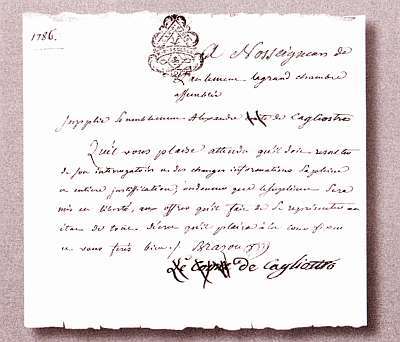 1786.
A Nosseigneurs de
Parlement la grand chambre
assemblée
Supplie humblement Alexandre de Cagliostro
Qu'il vous plaise attendu qu'il doit resulter
de son interrogatoire et des charges et informations sa pleine
et entiere justification, ordonner que le supliant sera
mis en liberté, aux offres qu'il fait de se représenter en
état de toutes qu'il plaira à la cour fixer
et vous ferés bien./
Le Comte de Cagliostro